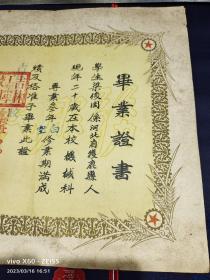 畢業證書
學生梁俊閣係河北省獲鹿縣人
現年二十歲在本校機械科
專業叁年制修業期滿成
績及格准予畢業此證
vivo X60 · ZEISS
2023/03/16 16:51